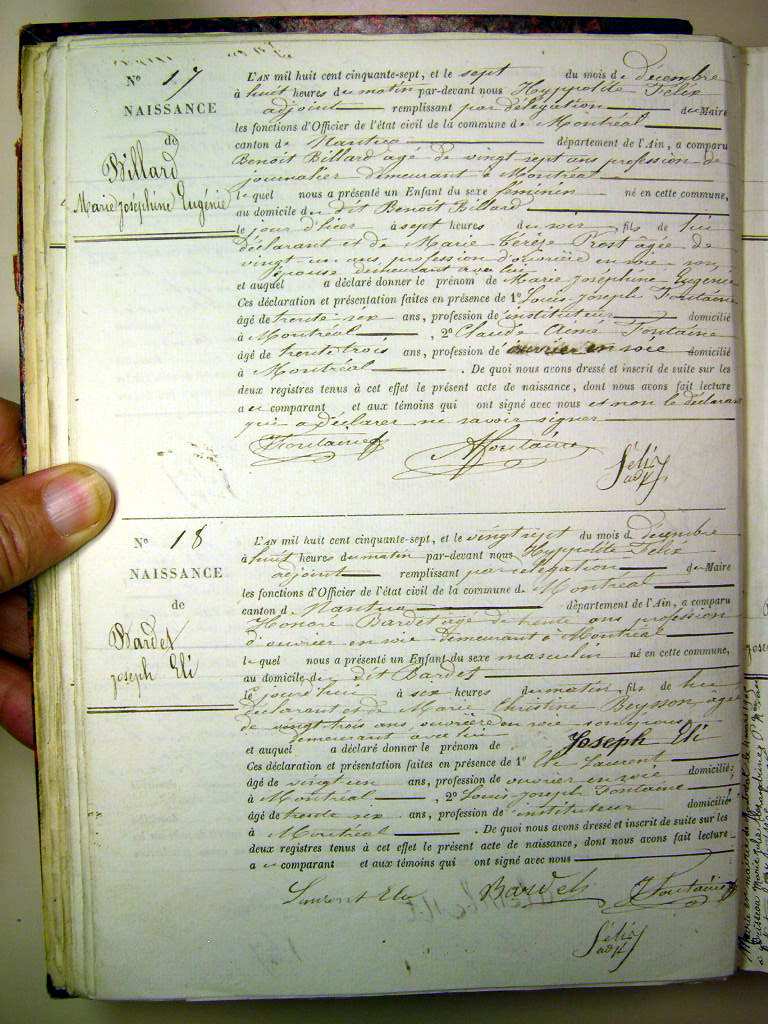 N° 17
NAISSANCE
de
Billard
Marie Joséphine Eugénie
L'AN mil huit cent cinquante-sept, et le sept du mois de décembre
à huit heures du matin par-devant nous Hyppolite Félix
adjoint remplissant par délégation du Maire
les fonctions d'Officier de l'état civil de la commune de Montréal
canton de Nantua département de l'Ain, a comparu
Benoit Billard âgé de vingt sept ans profession de
journalier demeurant à Montréal
lequel nous a présenté un Enfant du sexe féminin né en cette commune,
au domicile du dit Benoit Billard
le jour d'hier à sept heures du soir, fils de lui
déclarant et de Marie Térèze Prost âgée de
vingt un ans, profession d'ouvrière en soie son
épouse demeurant avec lui
et auquel a déclaré donner le prénom de Marie Joséphine Eugénie
Ces déclaration et présentation faites en présence de 1° Louis Joseph Fontaine
âgé de trente six ans, profession de instituteur domicilié
à Montréal , 2° Claude Aimé Fontaine
âgé de trente trois ans, profession de ouvrier en soie domicilié
à Montréal . De quoi nous avons dressé et inscrit de suite sur les
deux registres tenus à cet effet le présent acte de naissance, dont nous avons fait lecture
a u comparant et aux témoins qui ont signé avec nous et non le déclarant
qui a déclaré ne savoir signer
Fontaine
Fontaine
Félix
adj
N° 18
NAISSANCE
de
Bardet
Joseph Eli
L'AN mil huit cent cinquante-sept, et le vingt sept du mois de décembre
à huit heures du matin par-devant nous Hyppolite Félix
adjoint remplissant par délégation du Maire
les fonctions d'Officier de l'état civil de la commune de Montréal
canton de Nantua département de l'Ain, a comparu
Honoré Bardet âgé de trente ans profession
d'ouvrier en soie demeurant à Montréal
lequel nous a présenté un Enfant du sexe masculin né en cette commune,
au domicile du dit Bardet
le jourd'hui à six heures du matin, fils de lui
déclarant et de Marie Christine Beysson âgée
de vingt trois ans, ouvrière en soie son épouse
demeurant avec lui
et auquel a déclaré donner le prénom de Joseph Eli
Ces déclaration et présentation faites en présence de 1° Elie Laurent
âgé de vingt un ans, profession de ouvrier en soie domicilié
à Montréal , 2° Louis Joseph Fontaine
âgé de trente six ans, profession de instituteur domicilié
à Montréal . De quoi nous avons dressé et inscrit de suite sur les
deux registres tenus à cet effet le présent acte de naissance, dont nous avons fait lecture
a u comparant et aux témoins qui ont signé avec nous
Laurent Elie Bardet Fontaine
Félix
adj